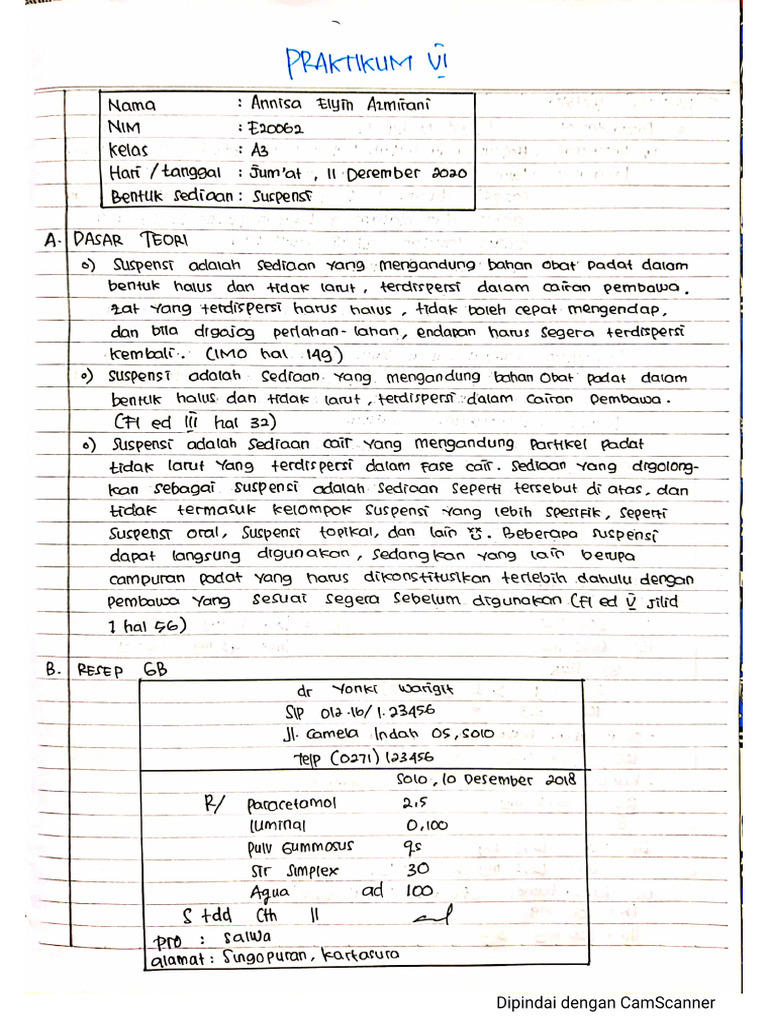 PRAKTIKUM VI
Nama : Annisa Elyin Azmirani
NIM : E20062
Kelas : A3
Hari / tanggal : Jum'at, 11 Desember 2020
Bentuk Sediaan : Suspensi
A. DASAR TEORI
o) Suspensi adalah sediaan yang mengandung bahan obat padat dalam
bentuk halus dan tidak larut, terdispersi dalam cairan pembawa.
zat yang terdispersi harus halus, tidak boleh cepat mengendap,
dan bila digojog perlahan-lahan, endapan harus segera terdispersi
kembali. (IMO hal 149)
o) Suspensi adalah sediaan yang mengandung bahan obat padat dalam
bentuk halus dan tidak larut, terdispersi dalam cairan pembawa.
(FI ed III hal 32)
o) Suspensi adalah sediaan cair yang mengandung partikel padat
tidak larut yang terdispersi dalam fase cair. Sediaan yang digolong-
kan sebagai suspensi adalah sediaan seperti tersebut di atas, dan
tidak termasuk kelompok suspensi yang lebih spesifik, seperti
suspensi oral, suspensi topikal, dan lain". Beberapa suspensi
dapat langsung digunakan, sedangkan yang lain berupa
campuran padat yang harus dikonstitusikan terlebih dahulu dengan
pembawa yang sesuai segera sebelum digunakan (FI ed V jilid
1 hal 56)
B. RESEP 6B
dr Yonki Warigit
SIP 012.16/1.23456
Jl. Camela Indah 05, Solo
Telp (0271) 123456
Solo, 10 Desember 2018
R/ Paracetamol 2,5
luminal 0,100
Pulv Gummosus qs
Sir Simplex 30
Aqua ad 100
S tdd Cth II
pro : Salwa
alamat : Singopuran, Kartasura
Dipindai dengan CamScanner